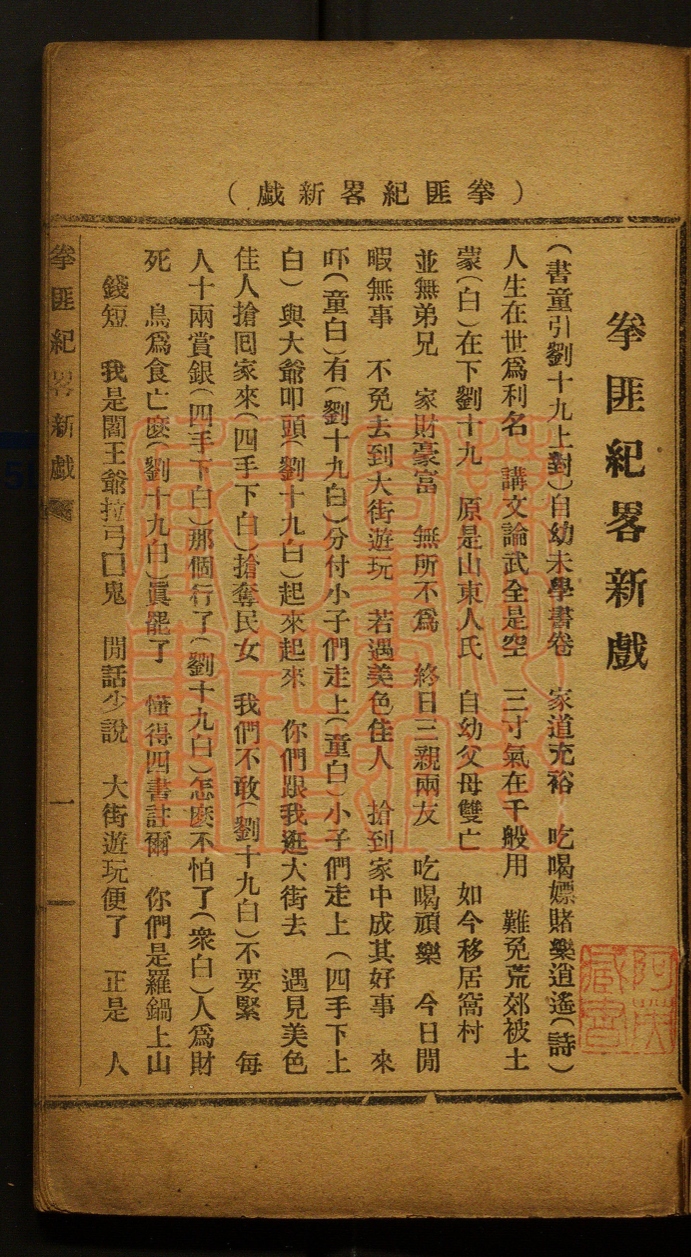 （拳匪紀畧新戲）
拳匪紀畧新戲
（書童引劉十九上對）自幼未學書卷　家道充裕　吃喝嫖賭樂逍遙（詩）
人生在世爲利名　講文論武全是空　三寸氣在千般用　難免荒郊被土
蒙（白）在下劉十九　原是山東人氏　自幼父母雙亡　如今移居窩村
並無弟兄　家財豪富　無所不爲　終日三親兩友　吃喝頑樂　今日閒
暇無事　不免去到大街遊玩　若遇美色佳人　拾到家中成其好事　來
吓（童白）有（劉十九白）分付小子們走上（童白）小子們走上（四手下上
白）與大爺叩頭（劉十九白）起來起來　你們跟我逛大街去　遇見美色
佳人搶囘家來（四手下白）搶奪民女　我們不敢（劉十九白）不要緊　每
人十兩賞銀（四手下白）那個行了（劉十九白）怎麽不怕了（衆白）人爲財
死　鳥爲食亡麽（劉十九白）眞罷了　懂得四書註爾　你們是羅鍋上山
錢短　我是閻王爺拉弓囗鬼　閒話少說　大街遊玩便了　正是　人
拳匪紀畧新戲
一
阿英
藏書